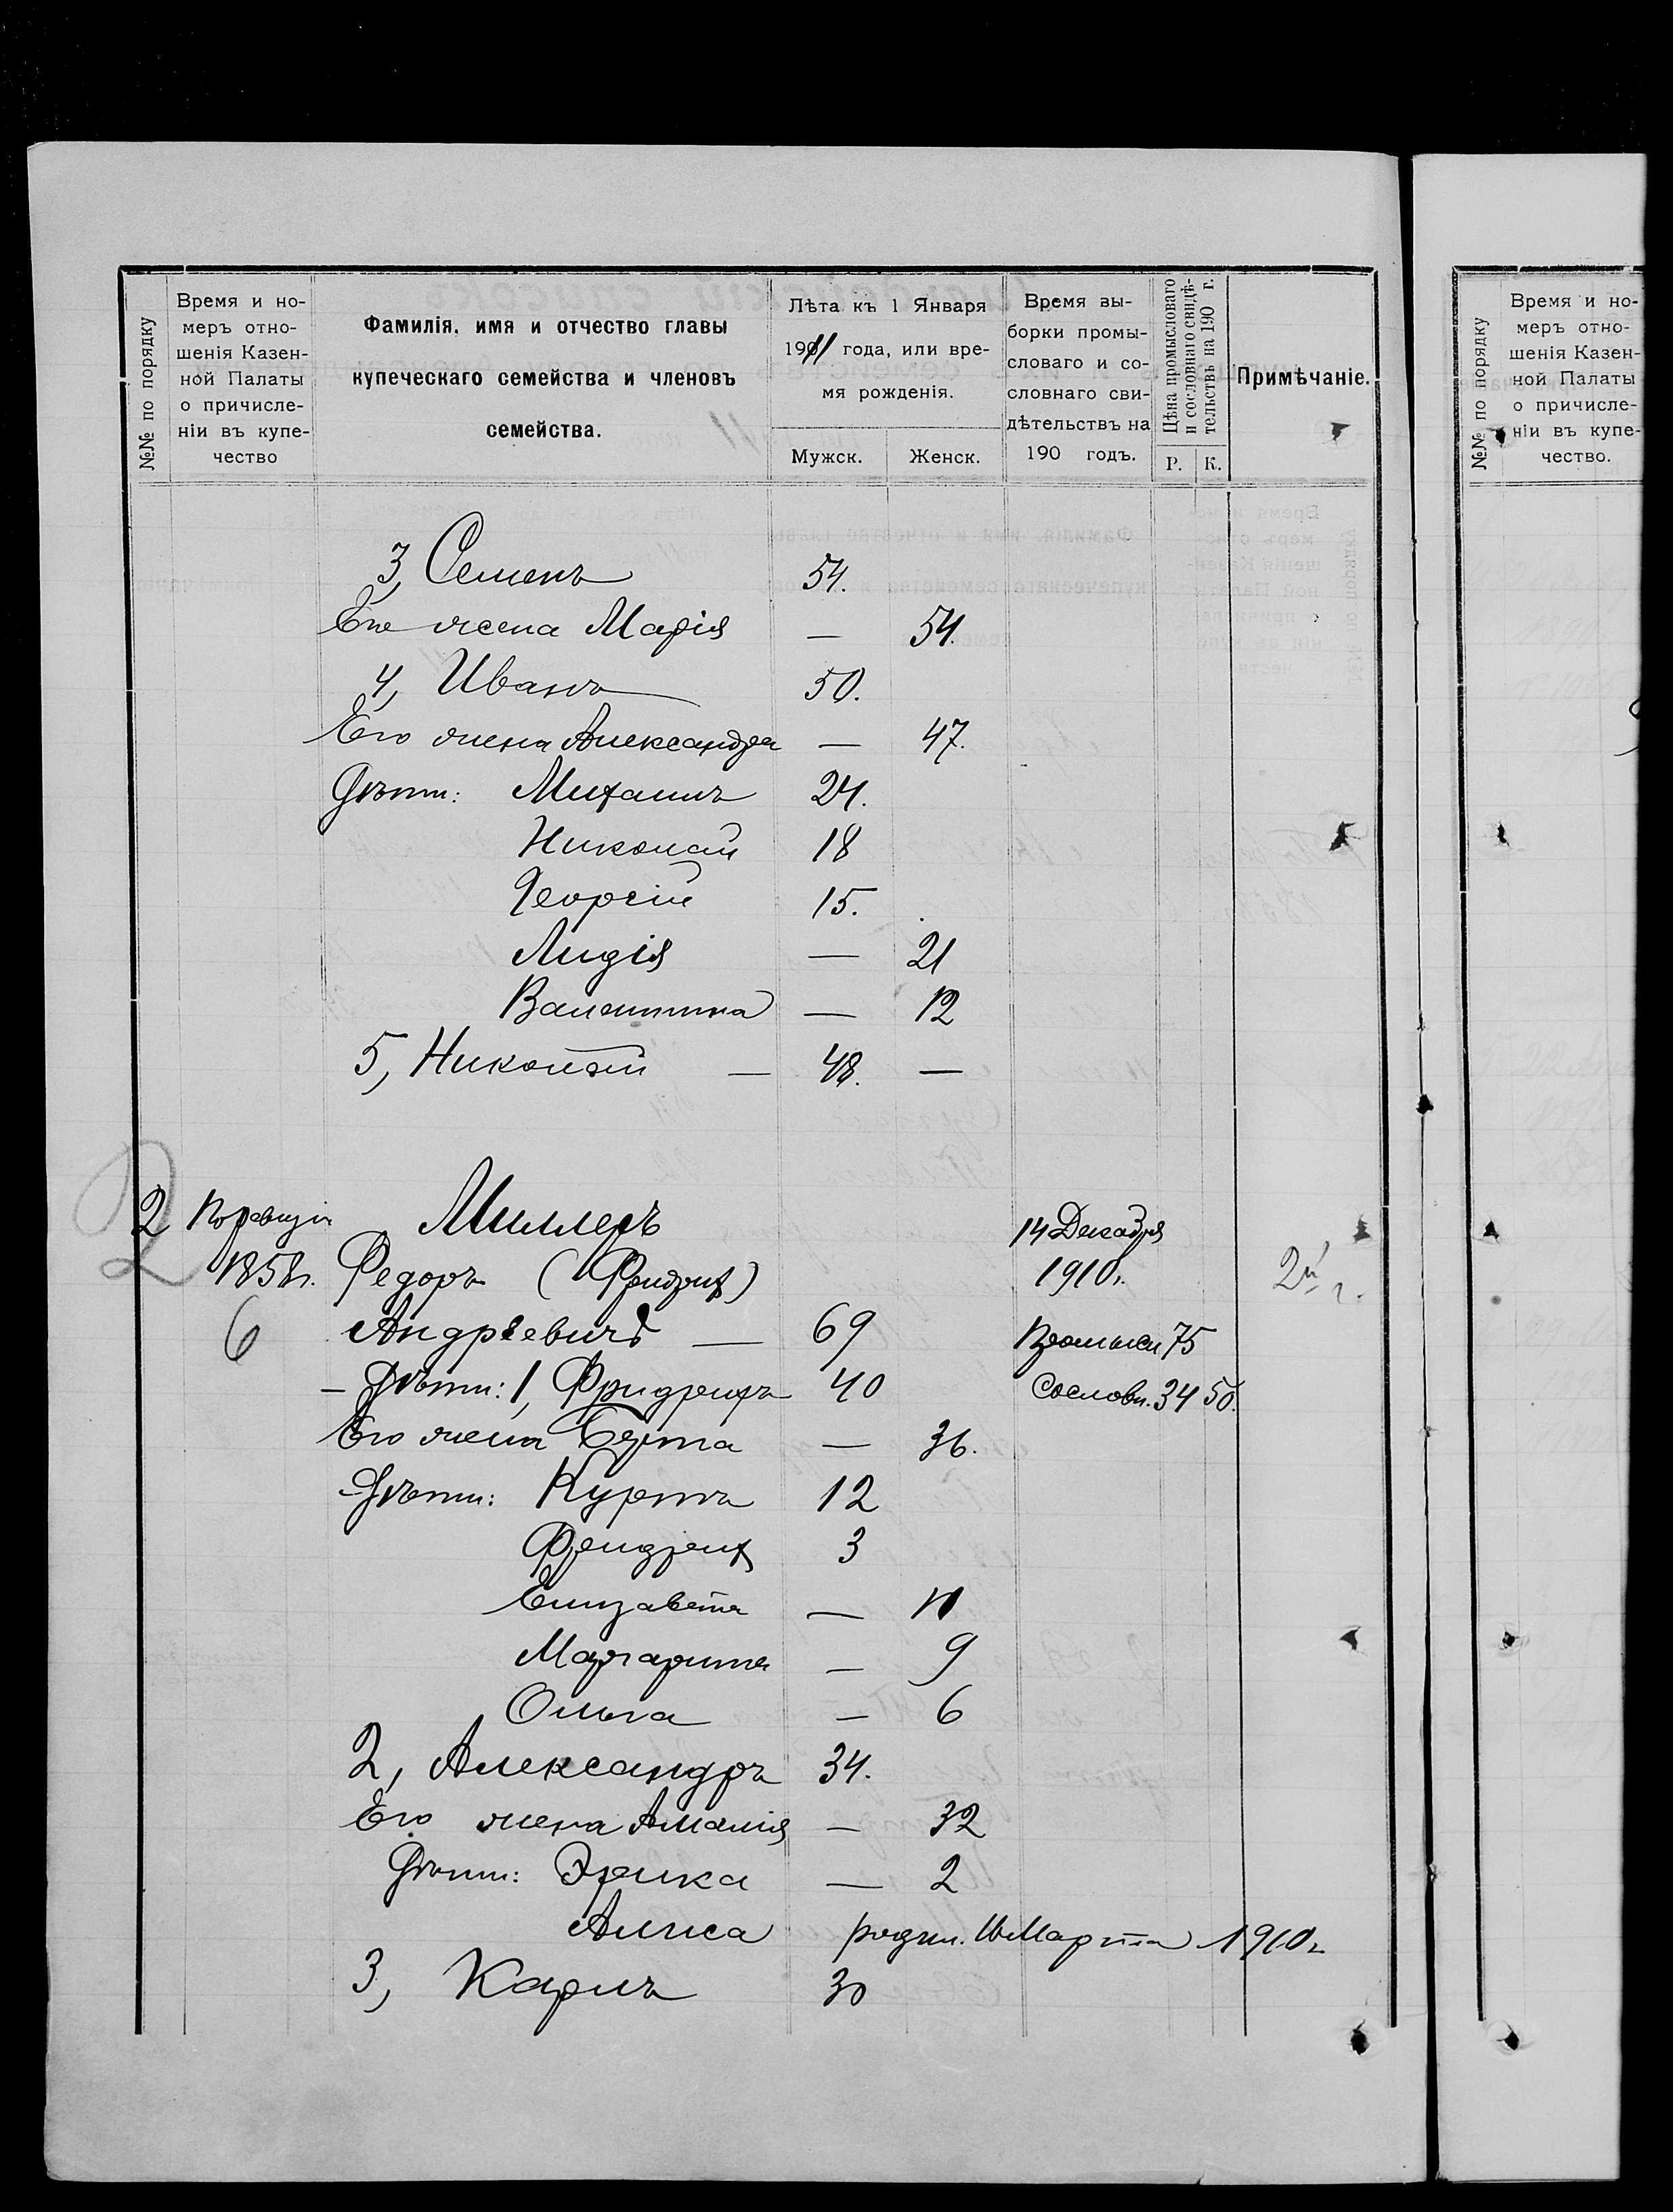 №№ по порядку
Время и но-
меръ отно-
шенія Казен-
ной Палаты
о причисле-
ніи въ купе-
чество
Фамилія, имя и отчество главы
купеческаго семейства и членовъ
семейства.
Лѣта къ 1 Января
1911 года, или вре-
мя рожденія.
Мужск. Женск.
Время вы-
борки промы-
словаго и со-
словнаго сви-
дѣтельствъ на
190 годъ.
Цѣна промысловаго
и сословнаго свидѣ-
тельствъ на 190 г.
Р. К.
Примѣчаніе.
3, Семенъ 54.
Его жена Марія — 54.
4, Иванъ 50.
Его жена Александра — 47.
Дѣти: Михаилъ 24.
Николай 18
Георгій 15.
Лидія — 21
Валентина — 12
5, Николай — 48. —
2 По ревизіи Миллеръ 14 Декабря
1858 г. Федоръ (Фридрих) 1910 г. 2й г.
6 Андреевичъ — 69 Промысл. 75
— Дѣти: 1, Фридрихъ 40 Сословн. 34 50.
Его жена Берта — 36.
Дѣти: Куртъ 12
Фридрих 3
Елизавета —
Маргарита — 9
Ольга — 6
2, Александръ 34.
Его жена Амалія — 32
Дѣти: Эрика — 2
Алиса родил. Марта 1910 г.
3, Карлъ 30
№№ по порядку
Время и но-
меръ отно-
шенія Казен-
ной Палаты
о причисле-
ніи въ купе-
чество.